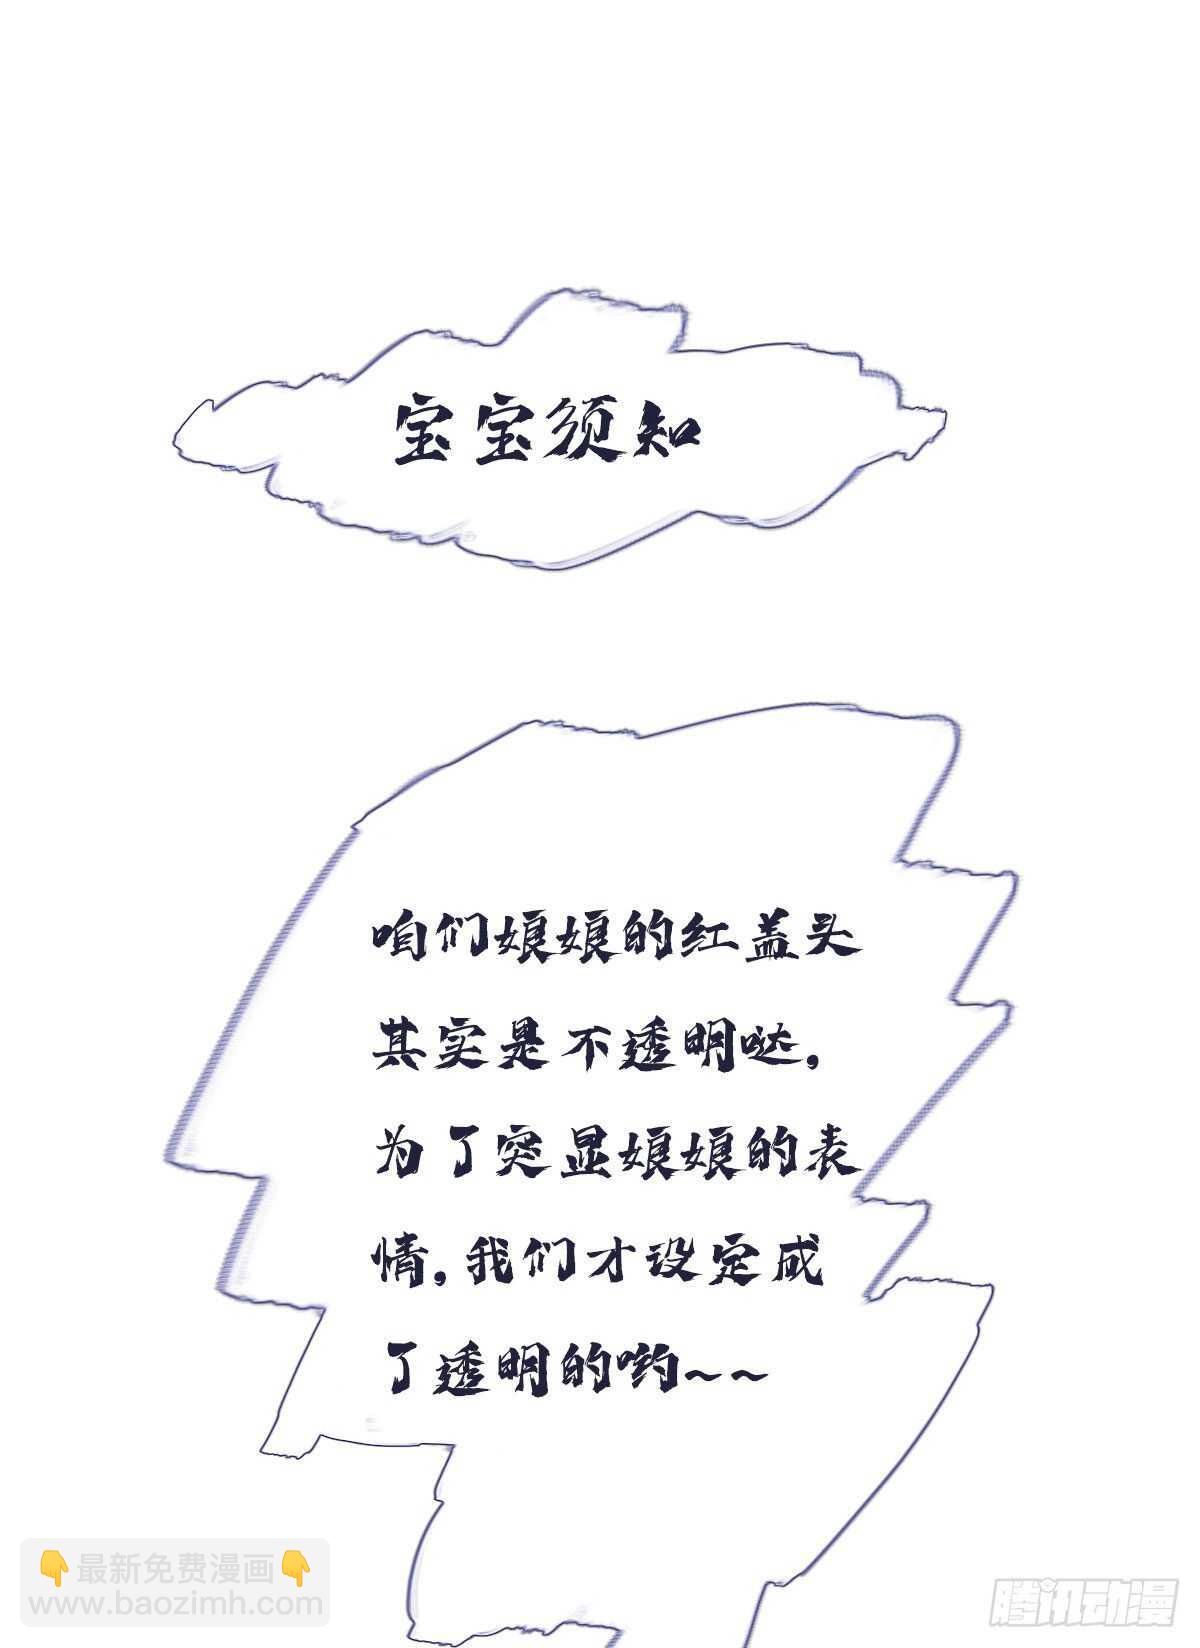 宝宝须知
咱们娘娘的红盖头
其实是不透明哒，
为了突显娘娘的表
情，我们才设定成
了透明的哟~~
👇最新免费漫画👇
www.baozimh.com
腾讯动漫